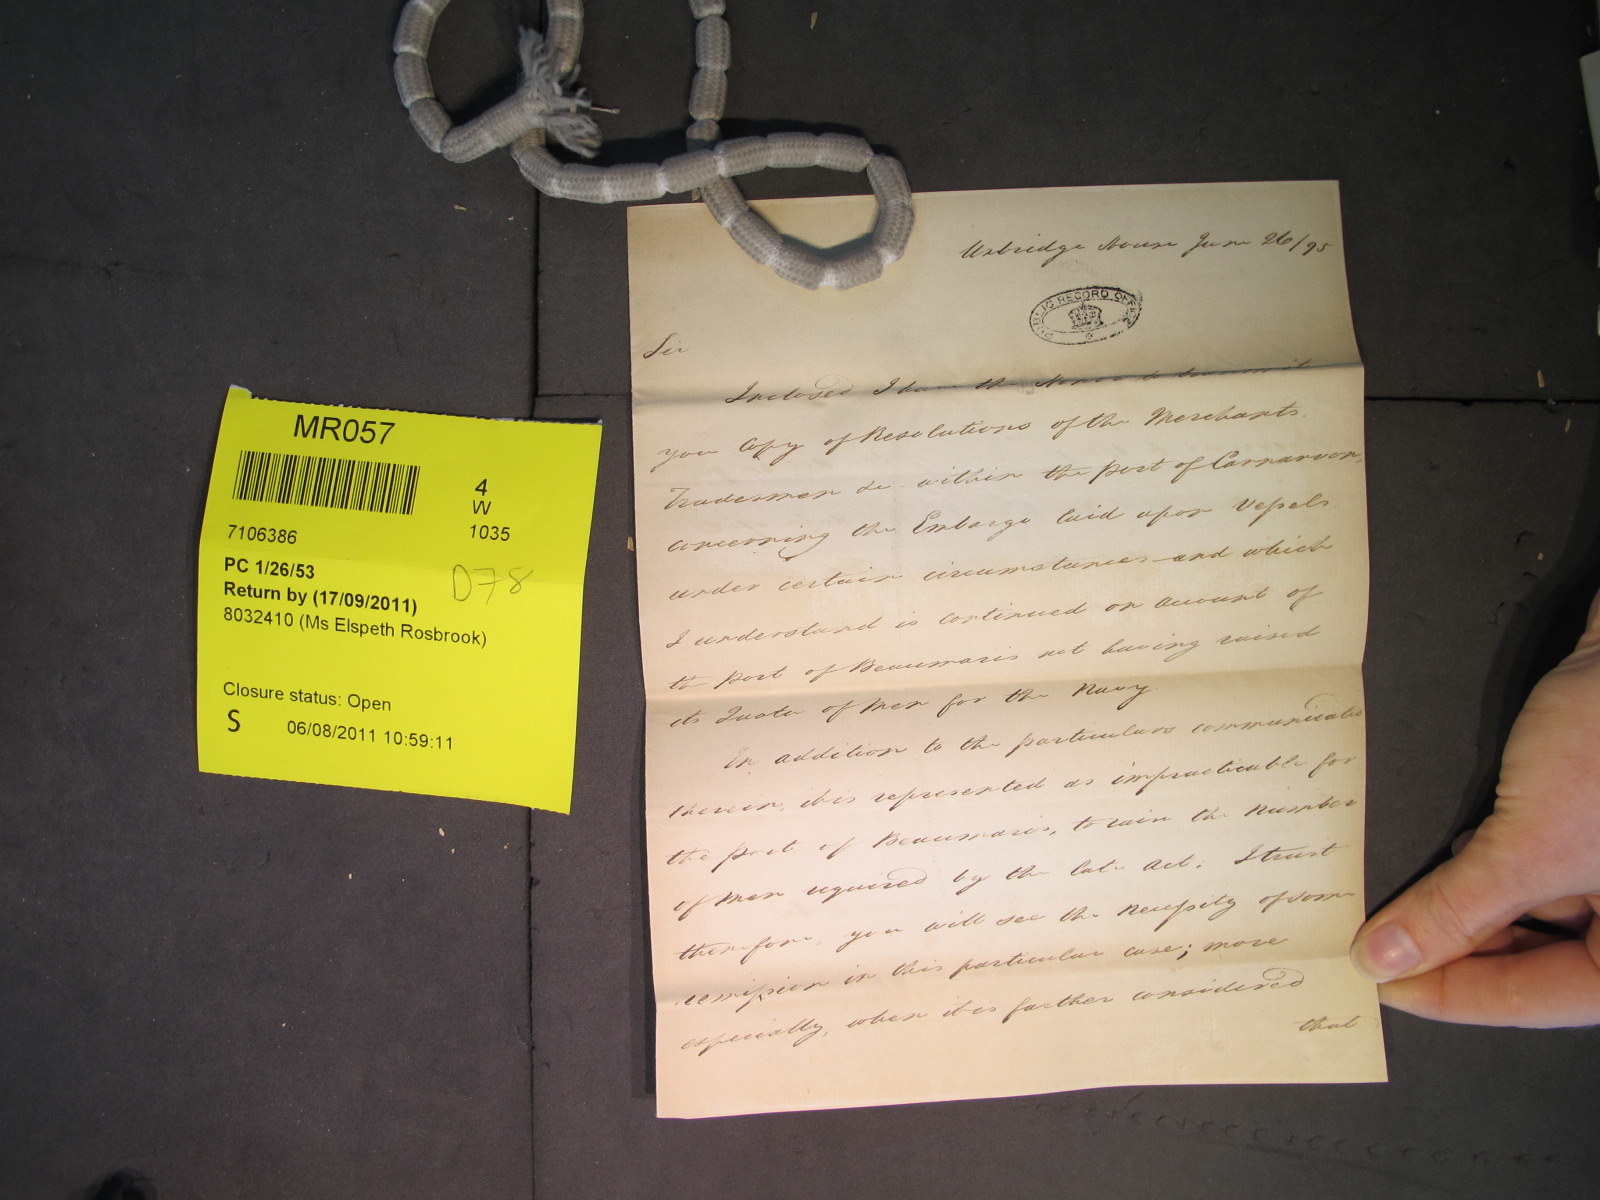 MR057
4
W
7106386
1035
PC 1/26/53
D78
Return by (17/09/2011)
8032410 (Ms Elspeth Rosbrook)
Closure status: Open
S
06/08/2011 10:59:11
Uxbridge House June 26/95
PUBLIC RECORD OFFICE
Sir
Inclosed I have the Honor to transmit
you Copy of Resolutions of the Merchants
Tradesmen &c within the port of Carnarvon,
concerning the Embargo laid upon Vessels
under certain circumstances and which
I understand is continued on account of
the port of Beaumaris not having raised
its Quota of Men for the Navy.
In addition to the particulars communicated
therein, it is represented as impracticable for
the port of Beaumaris, to raise the Number
of Men required by the late Act. I trust
therefore, you will see the necessity of some
remission in this particular case; more
especially, when it is farther considered
that